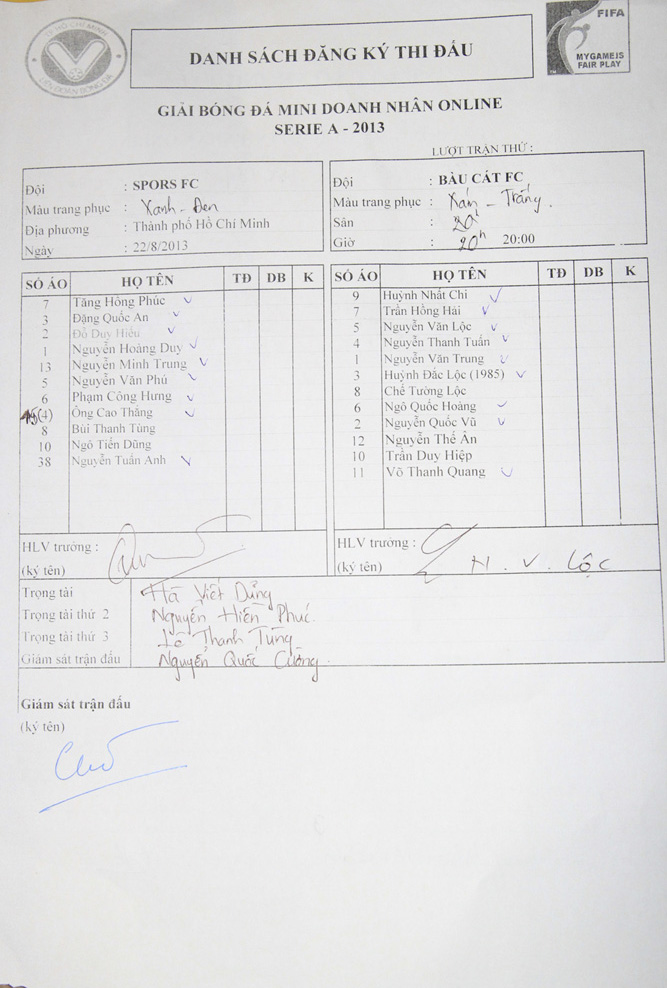 TP HỒ CHÍ MINH
LIÊN ĐOÀN BÓNG ĐÁ
DANH SÁCH ĐĂNG KÝ THI ĐẤU
FIFA
MYGAMEIS
FAIR PLAY
GIẢI BÓNG ĐÁ MINI DOANH NHÂN ONLINE
SERIE A - 2013
LƯỢT TRẬN THỨ :
Đội : SPORS FC
Màu trang phục : Xanh - Đen
Địa phương : Thành phố Hồ Chí Minh
Ngày : 22/8/2013
Đội : BÀU CÁT FC
Màu trang phục : Xám - Trắng.
Sân :
Giờ : 20h 20:00
SỐ ÁO HỌ TÊN TĐ DB K
7 Tăng Hồng Phúc
3 Đặng Quốc An
2 Đỗ Duy Hiếu
1 Nguyễn Hoàng Duy
13 Nguyễn Minh Trung
5 Nguyễn Văn Phú
6 Phạm Công Hưng
(4) Ông Cao Thắng
8 Bùi Thanh Tùng
10 Ngô Tiến Dũng
38 Nguyễn Tuấn Anh
SỐ ÁO HỌ TÊN TĐ DB K
9 Huỳnh Nhất Chi
7 Trần Hồng Hải
5 Nguyễn Văn Lộc
4 Nguyễn Thanh Tuấn
1 Nguyễn Văn Trung
3 Huỳnh Đắc Lộc (1985)
8 Chế Tường Lộc
6 Ngô Quốc Hoàng
2 Nguyễn Quốc Vũ
12 Nguyễn Thế Ân
10 Trần Duy Hiệp
11 Võ Thanh Quang
HLV trưởng :
(ký tên)
HLV trưởng :
(ký tên) H.V. Lộc
Trọng tài Hà Viết Dũng
Trọng tài thứ 2 Nguyễn Hiền Phúc.
Trọng tài thứ 3 Lê Thanh Tùng
Giám sát trận đấu Nguyễn Quốc Cường.
Giám sát trận đấu
(ký tên)